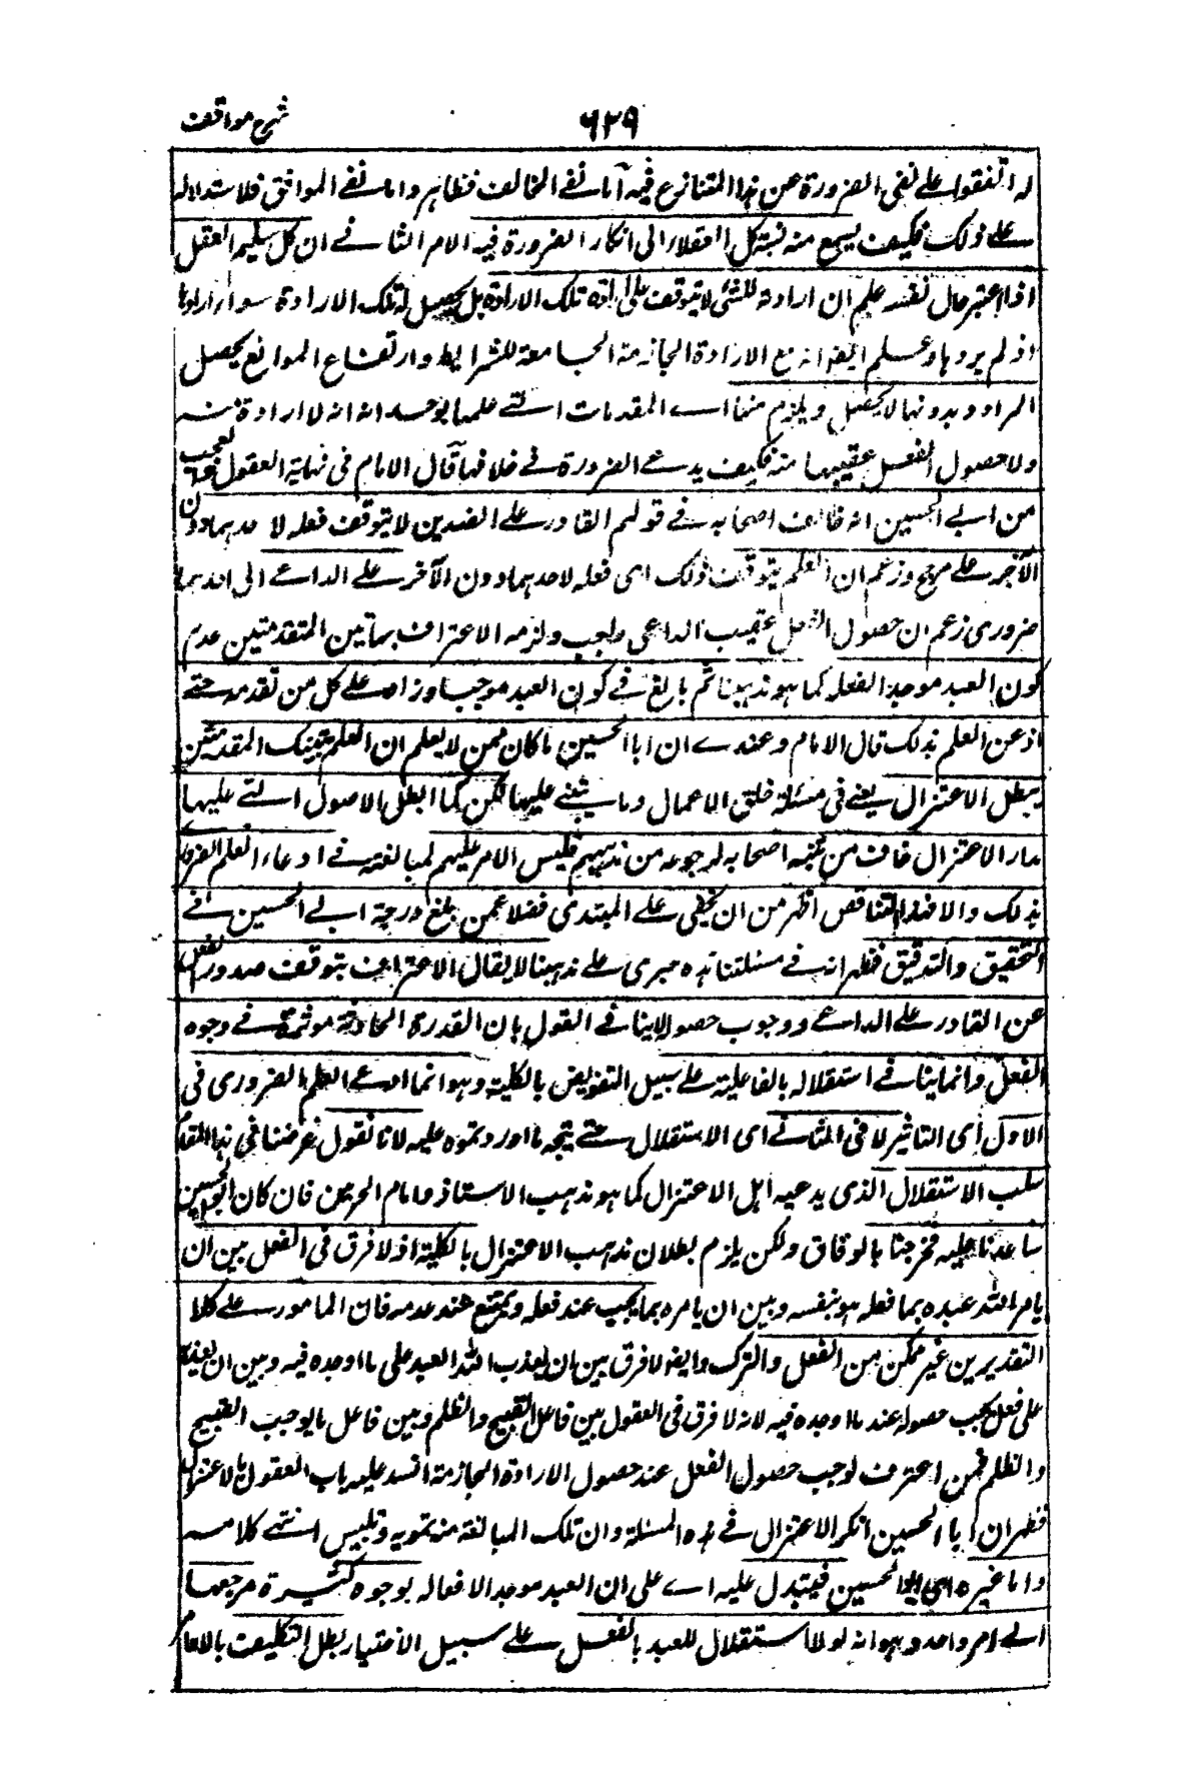 شرح مواقف
٦٢٩
له اتفقوا على نفى الضرورة عن هذا المتنازع فيه اما نفے المخالف فظاهر واما نفے الموافق فلاستدلاله
علے ذلك فكيف يسمع منه نسبة كل العقلاء الى انكار الضرورة فيه الامر الثانے ان كل سليم العقل
اذا اعتبر حال نفسه علم ان ارادته للشئ لا يتوقف على ارادة تلك الارادة بل يحصل له تلك الارادة سواء ارادها
اذ لم يردها وعلم ايضا انه مع الارادة الجازمة الجامعة للشرايط وارتفاع الموانع يحصل
المراد وبدونها لا يحصل ويلزم منها اے المقدمات التے علمها بوجدانه انه لا ارادة منه
ولا حصول الفعل عقيبها منه فكيف يدعے الضرورة فے خلافها قال الامام فى نهاية العقول العجب
من ابے الحسين انه خالف اصحابه فے قولهم القادر علے الضدين لا يتوقف فعله لاحدهما دون
الآخر علے مرجح وزعم ان العلم بتوقف ذلك اى فعله لاحدهما دون الآخر علے الداعے الى احدهما
ضرورى زعم ان حصول الفعل عقيب الداعى واجب ولزمه الاعتراف بهاتين المقدمتين عدم
كون العبد موجدا لفعله كما هو مذهبنا ثم بالغ فے كون العبد موجبا وزاد علے كل من تقدمه حتے
ادعى العلم بذلك قال الامام وعندے ان ابا الحسين ما كان ممن لا يعلم ان العلم بتينك المقدمتين
يبطل الاعتزال يعنے فى مسئلة خلق الاعمال وما يبتنے عليها لكن لما ابطل الاصول التے عليها
مدار الاعتزال خاف من تنبه اصحابه لرجوعه من مذهبهم فلبس الامر عليهم لمبالغته فے ادعاء العلم الضرورے
بذلك والا فهذا التناقض اظهر من ان يخفى علے المبتدى فضلا عمن بلغ درجة ابے الحسين فے
التحقيق والتدقيق فظهر انه فے مسئلتنا هذه جبرى علے مذهبنا لا يقال الاعتراف بتوقف صدور الفعل
عن القادر علے الداعے ووجوب حصوله لا ينافے القول بان القدرة الحادثة مؤثرة فے وجود
الفعل وانما ينافے استقلاله بالفاعلية علے سبيل التفويض بالكلية وهو انما ادعے العلم الضرورى فى
الاول اى التاثير لا فى الثانے اى الاستقلال حتے يتجه ما اوردتموه عليه لانا نقول غرضنا فى هذا المقام
سلب الاستقلال الذى يدعيه اهل الاعتزال كما هو مذهب الاستاذ وامام الحرمين فان كان ابو الحسين
ساعدنا عليه فمرحبا بالوفاق ولكن يلزم بطلان مذهب الاعتزال بالكلية اذ لا فرق فى العقل بين ان
يامر الله عبده بما فعله هو بنفسه وبين ان يامره بما يجب عند فعله ويمتنع عند عدمه فان المامور علے كلا
التقديرين غير ممكن من الفعل والترك وايضا لا فرق بين ان يعذب الله العبد على ما اوجده فيه وبين ان يعذبه
على فعل يجب حصوله عند ما اوجده فيه لانه لا فرق فى العقول بين فاعل القبيح والظلم وبين فاعل ما يوجب القبيح
والظلم فمن اعترف لوجب حصول الفعل عند حصول الارادة الجازمة انسد عليه باب العقول بالاعتزال
فظهر ان ابا الحسين انكر الاعتزال فے هذه المسئلة وان تلك المبالغة منه تمويه وتلبيس انتهے كلامه
واما غيره اى ابو الحسين فيستدل عليه اے على ان العبد موجد لافعاله بوجوه كثيرة مرجعها
الے امر واحد وهو انه لولا استقلال للعبد بالفعل علے سبيل الاختيار بطل التكليف بالاوامر